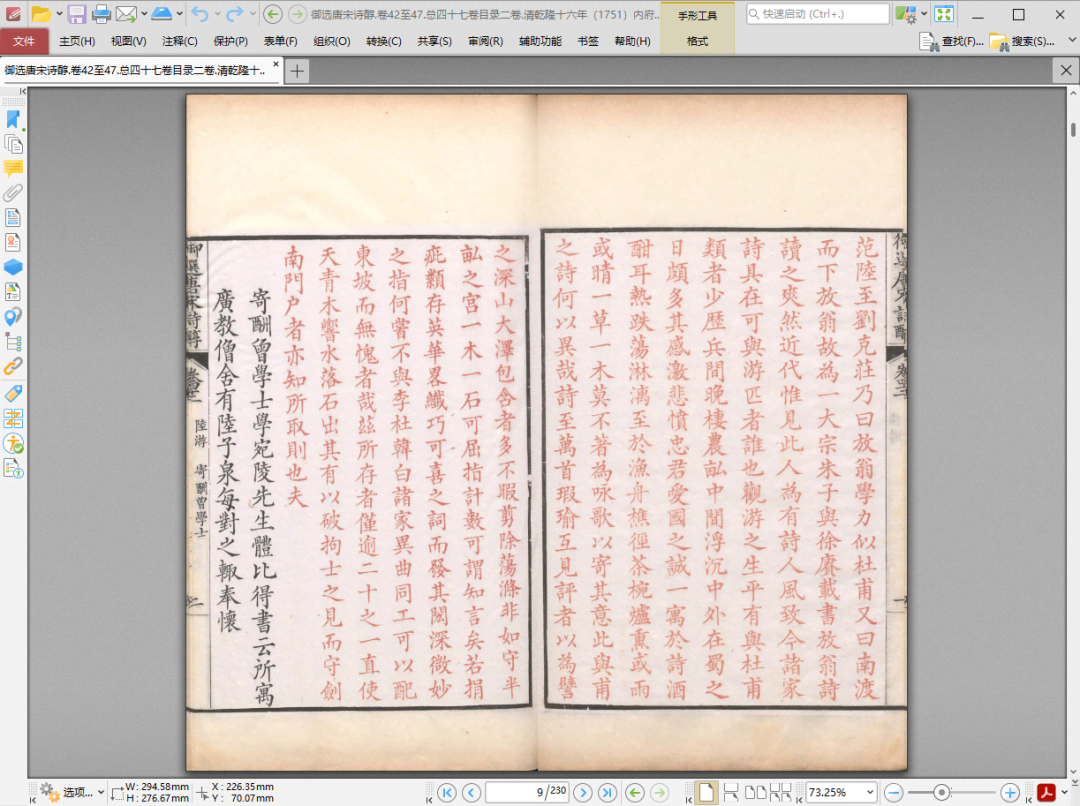 御选唐宋诗醇.卷42至47.总四十七卷目录二卷.清乾隆十六年（1751）内府..
手形工具
快速启动 (Ctrl+.)
文件
主页(H)
视图(V)
注释(C)
保护(P)
表单(F)
组织(O)
转换(C)
共享(S)
审阅(R)
辅助功能
书签
帮助(H)
格式
查找(F)...
搜索(S)...
御选唐宋诗醇.卷42至47.总四十七卷目录二卷.清乾隆十..
范陸至劉克莊乃曰放翁學力似杜甫又曰南渡
而下放翁故為一大宗朱子與徐賡載書放翁詩
讀之爽然近代惟見此人為有詩人風致今諸家
詩具在可與游匹者誰也觀游之生平有與杜甫
類者少歷兵間晚棲農畝中間浮沉中外在蜀之
日頗多其感激悲憤忠君愛國之誠一寓於詩酒
酣耳熱跌蕩淋漓至於漁舟樵徑茶椀爐熏或雨
或晴一草一木莫不著為咏歌以寄其意此與甫
之詩何以異哉詩至萬首瑕瑜互見評者以為譬
之深山大澤包含者多不暇剪除蕩滌非如守半
畝之宮一木一石可屈指計數可謂知言矣若捐
疵纇存英華畧纖巧可喜之詞而發其閎深微妙
之指何嘗不與李杜韓白諸家異曲同工可以配
東坡而無愧者哉茲所存者僅逾二十之一直使
天青木響水落石出其有以破拘士之見而守劍
南門户者亦知所取則也夫
寄酬曾學士學宛陵先生體比得書云所寓
廣教僧舍有陸子泉每對之輒奉懷
御選唐宋詩醇
陸游
寄酬曾學士
选项...
W: 294.58mm
H: 276.67mm
X: 226.35mm
Y: 70.07mm
9/230
73.25%